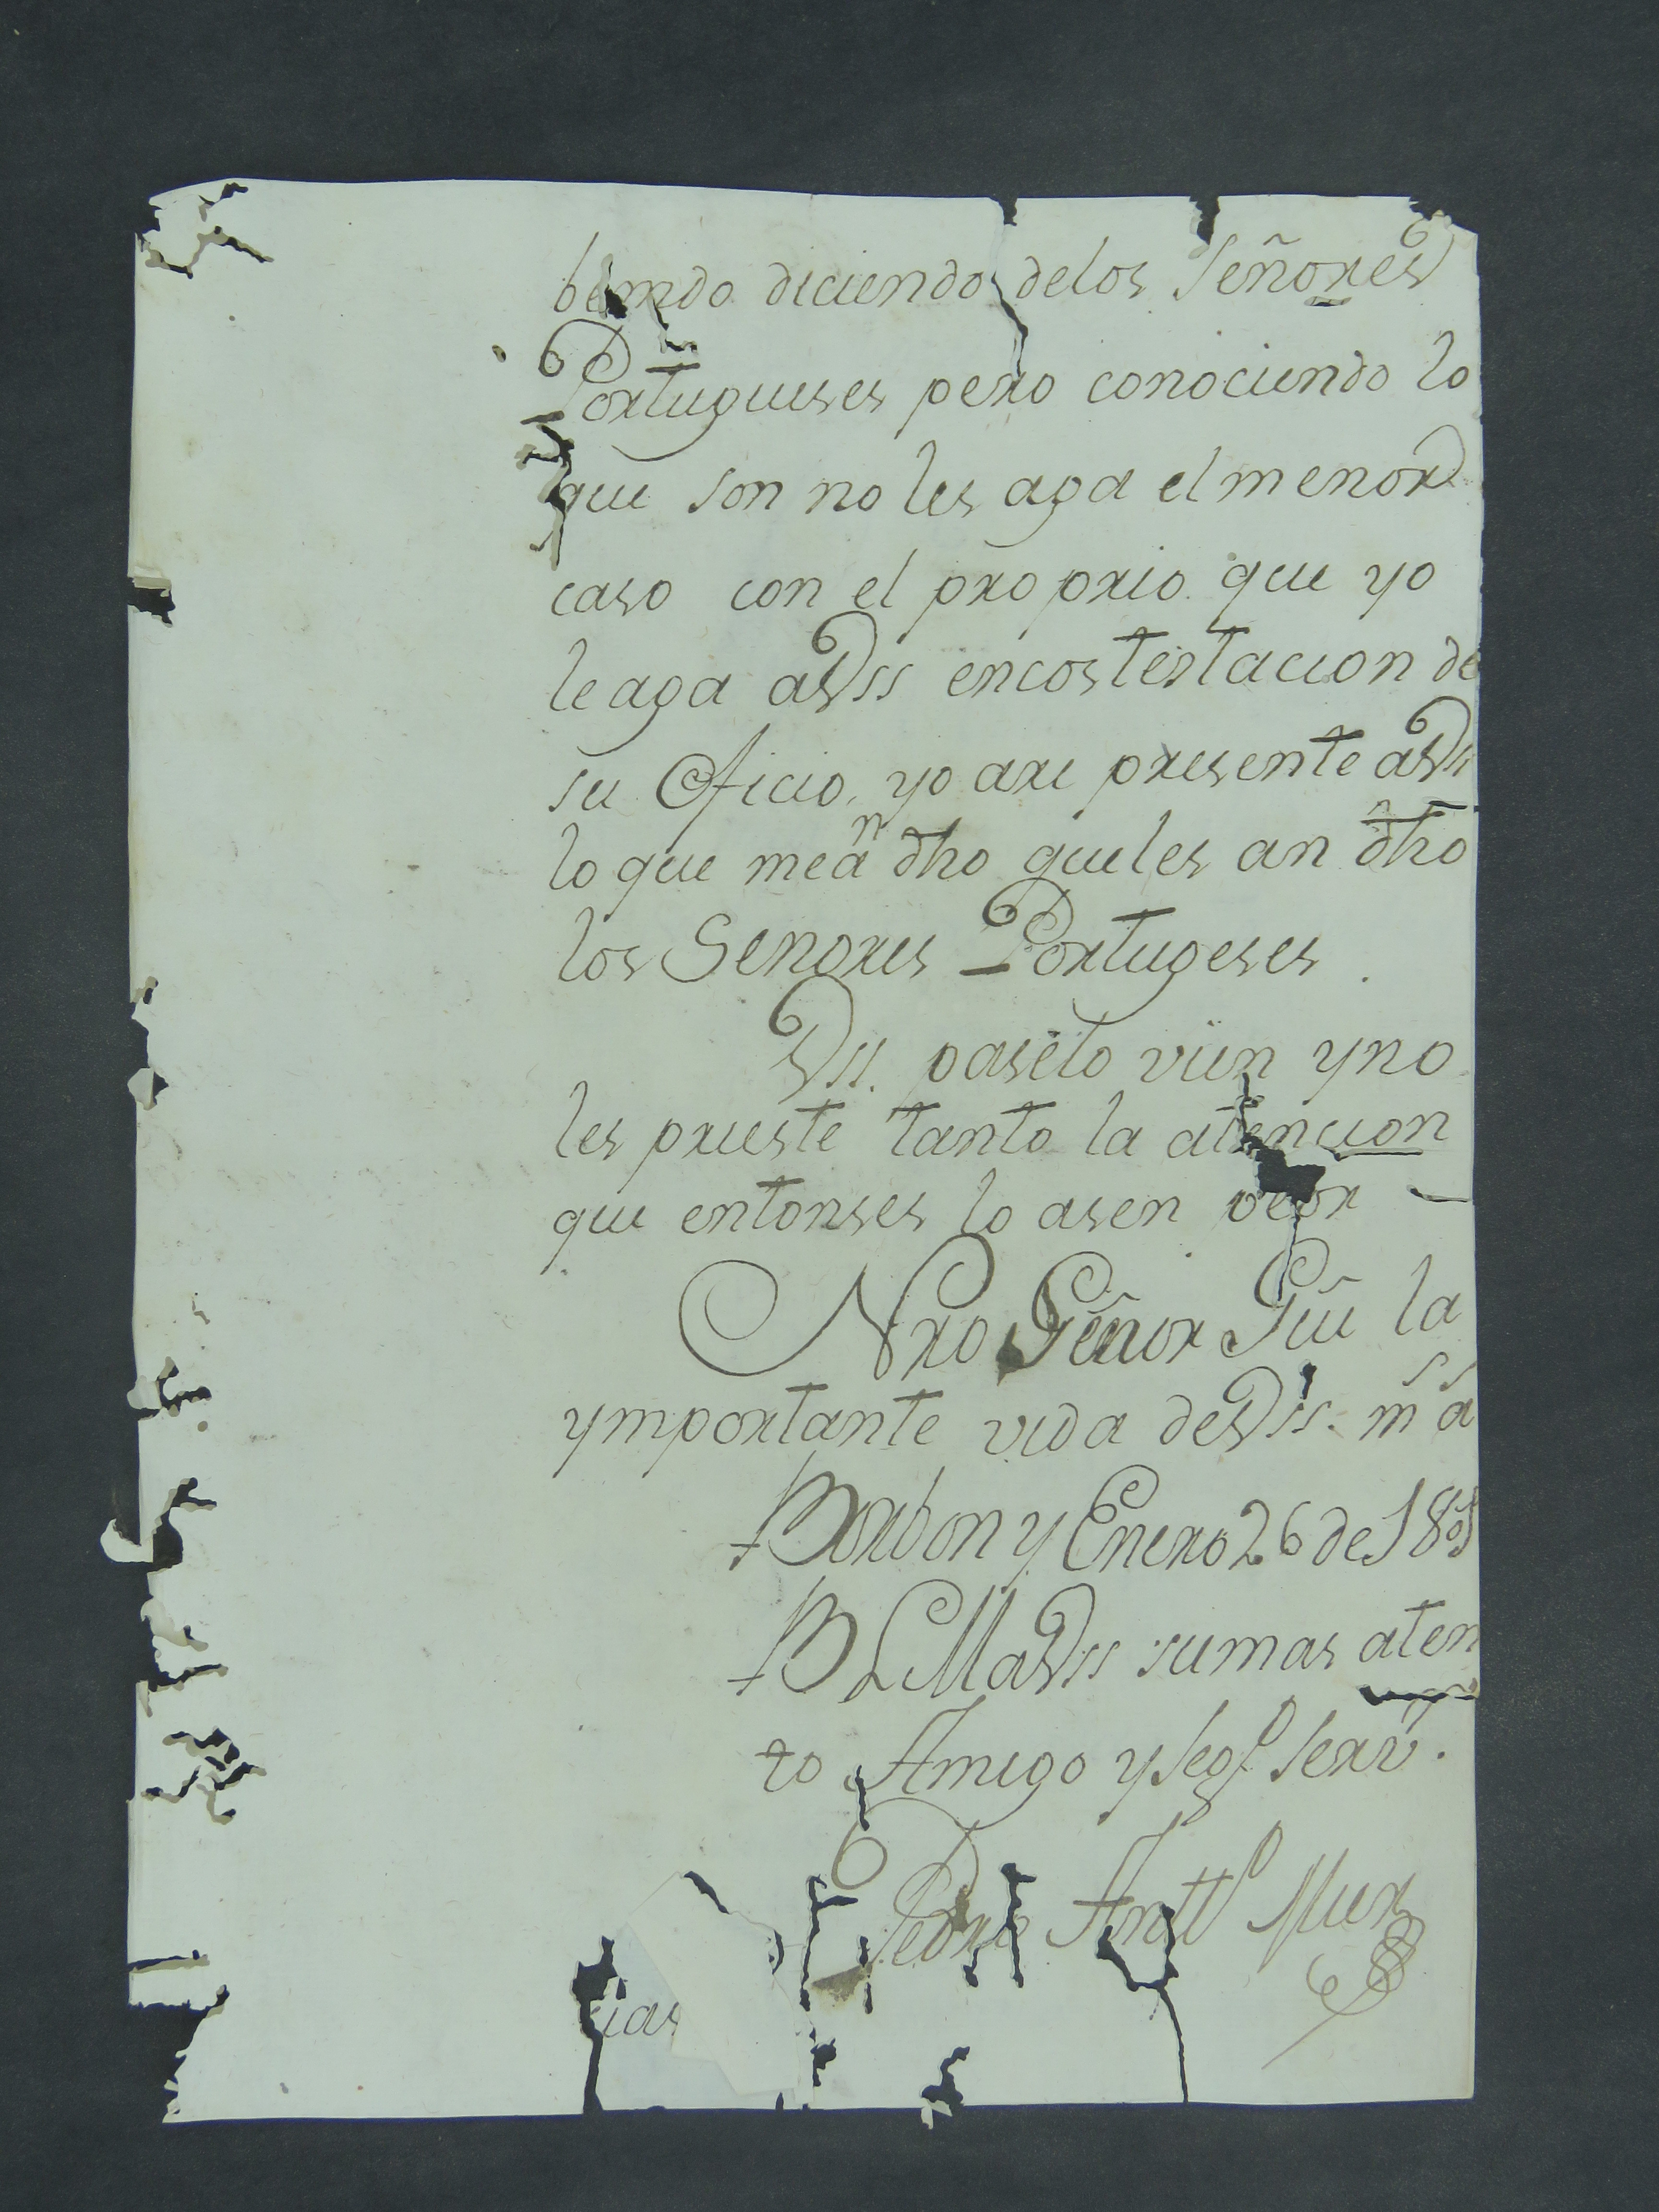 biendo diciendo delos Señores
Portugueses pero conociendo lo
que son no les aga el menor
caso con el proprio que yo
le aga aVss encostestacion de
su Oficio, yo are presente aVss
lo que meaⁿ dho queles an dho
los Senores Portugeses.
Vss. paselo vien yno
les prieste tanto la atencion
que entonses lo asen peor
Nro Señor Gũe la
ymportante vida deVss. mˢ aˢ
Borbon y Enero 26 de 1801
B L M aVss sumas aten
to Amigo y Segᵒ Serv.ʳ
Pedro Anttᵒ Mier
ias